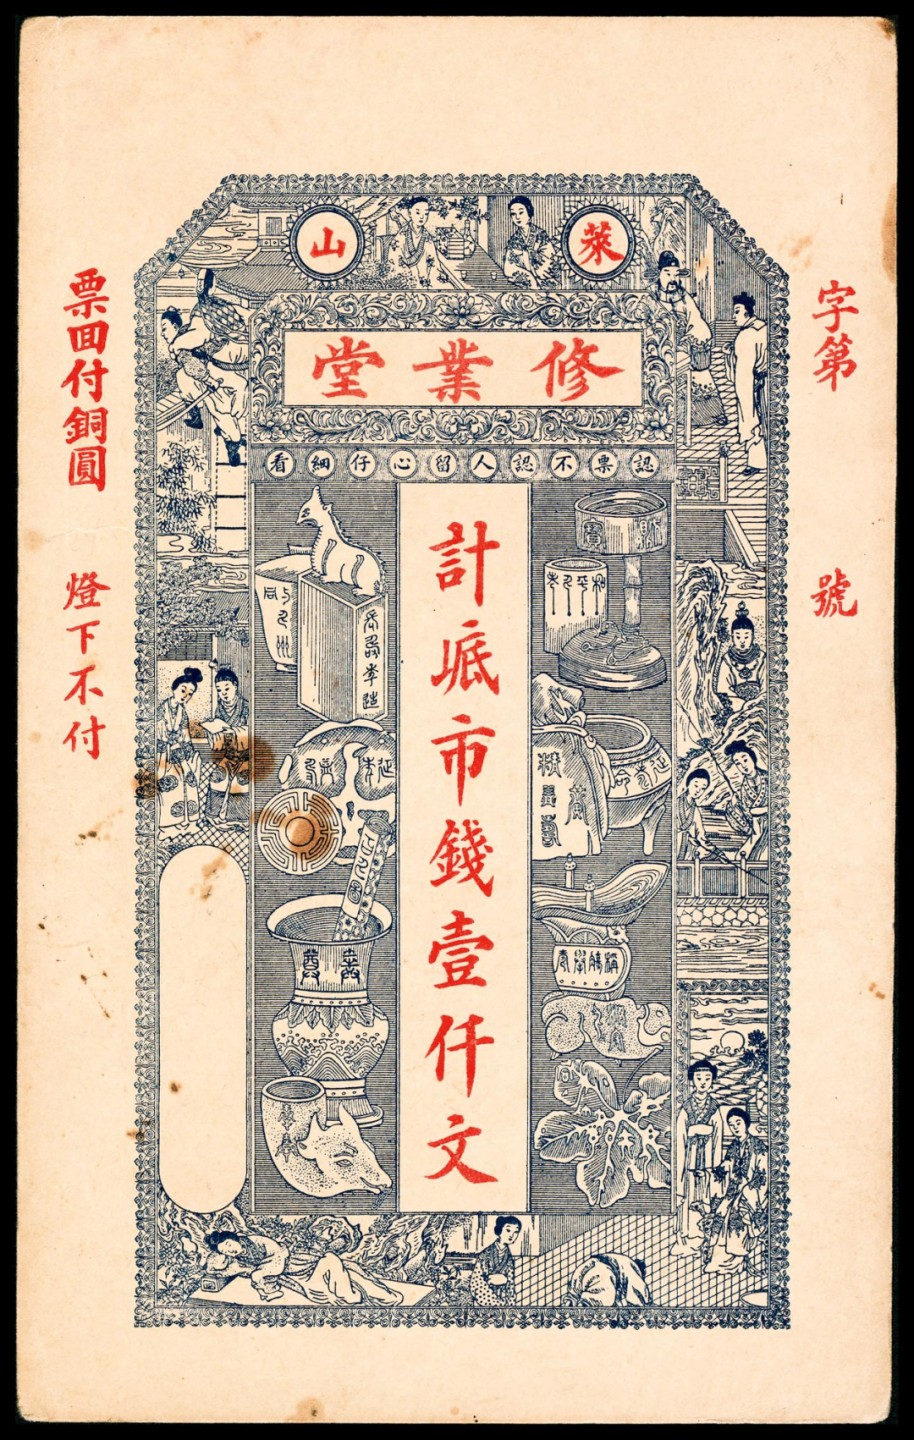 萊山
修業堂
認票不認人留心仔細看
字第
號
計底市錢壹仟文
票囬付銅圓
燈下不付